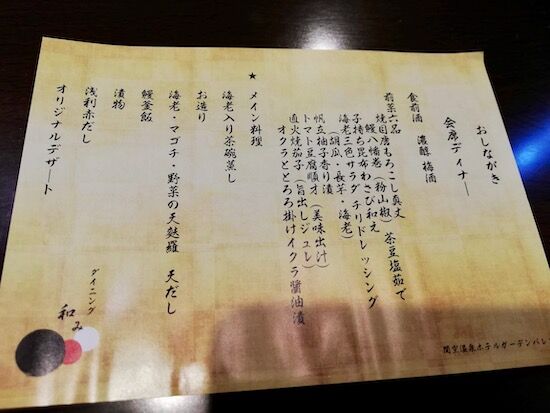 おしながき
会席ディナー
食前酒 濃醇 梅酒
前菜六品
焼目唐もろこし真丈 茶豆塩茹で
鰻八幡巻(粉山椒)
子持ち昆布わさび和え
海老三色サラダ チリドレッシング
(胡瓜・長芋・海老)
帆立柚子香り漬
トマト豆腐順才(美味出汁)
直火焼茄子(旨出しジュレ)
オクラととろろ掛けイクラ醬油漬
★ メイン料理
海老入り茶碗蒸し
お造り
海老・マゴチ・野菜の天麩羅 天だし
鰻釜飯
漬物
浅利赤だし
オリジナルデザート
ダイニング
和み
関空温泉ホテルガーデンパレ